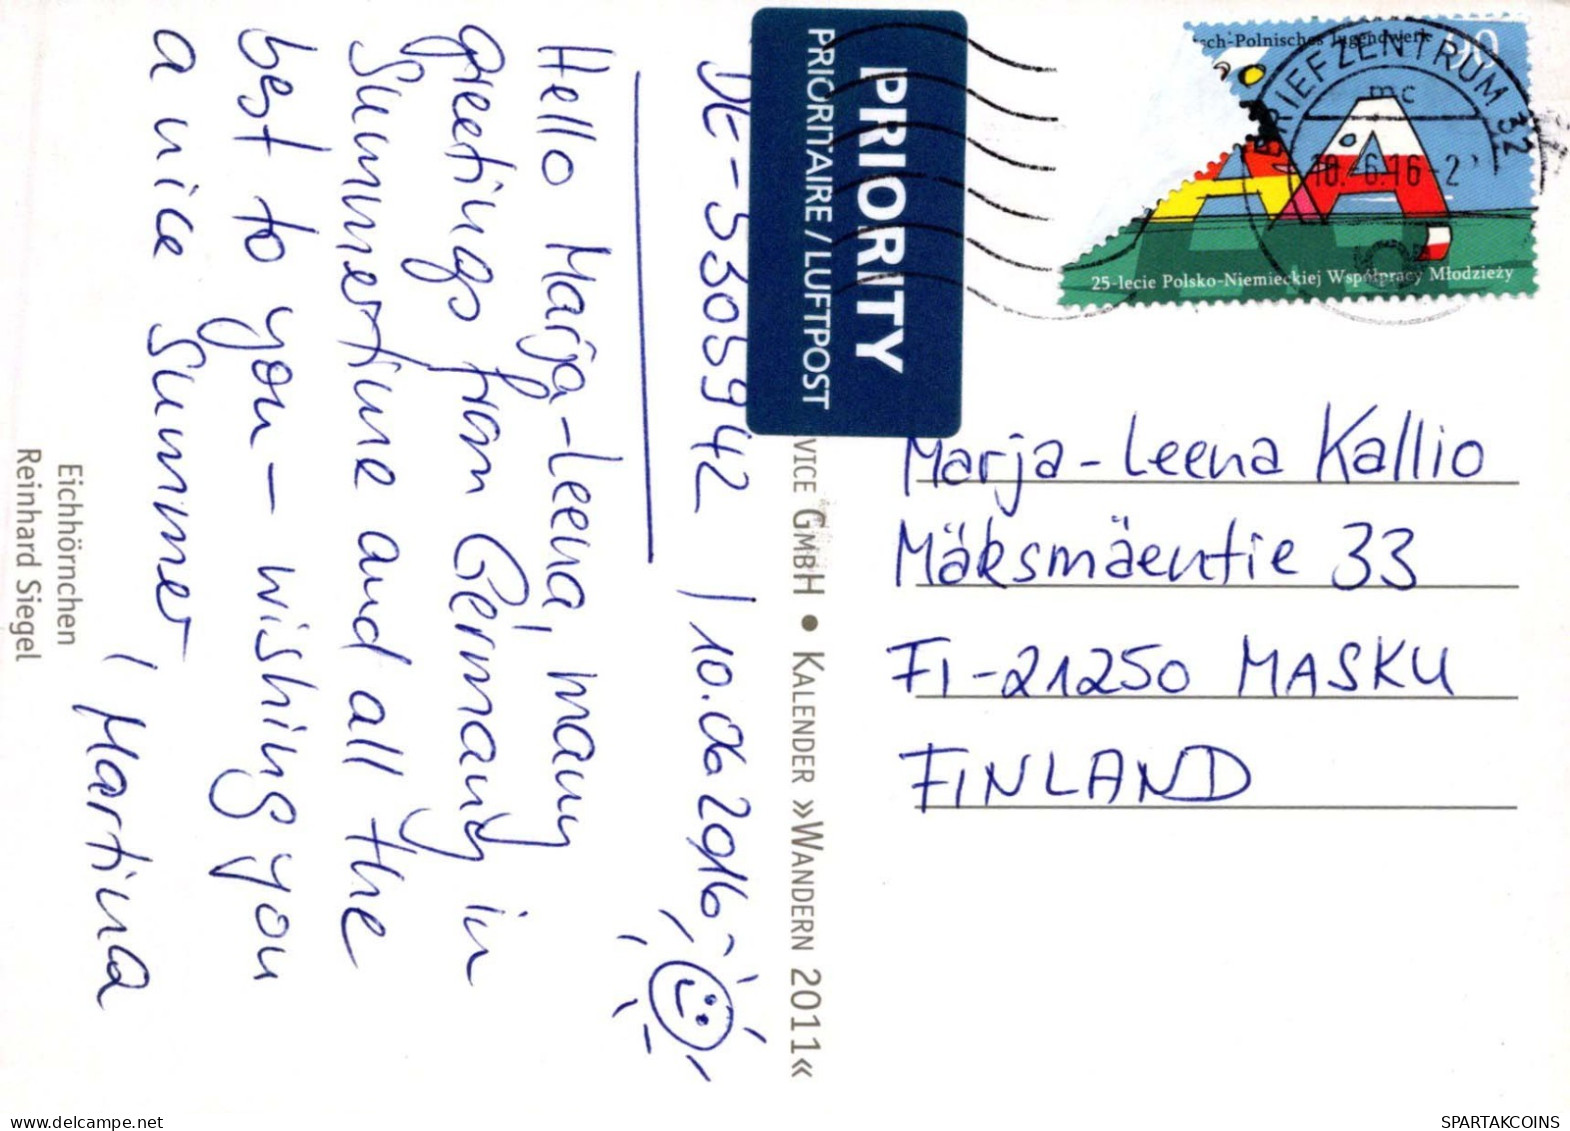 DE-5305942 / 10.06.2016
Hello Marja-Leena, many
greetings from Germany in
Summertime and all the
best to you – wishing you
a nice Summer,
/ Martina
Eichhörnchen
Reinhard Siegel
VICE GMBH • KALENDER »WANDERN 2011«
PRIORITY
PRIORITAIRE / LUFTPOST
sch-Polnisches Jugendwerk 90
BRIEFZENTRUM 32
mc
10.-6.16-2
25-lecie Polsko-Niemieckiej Współpracy Młodzieży
Marja-Leena Kallio
Mäksmäentie 33
FI-21250 MASKU
FINLAND
delcampe.net
SPARTAKCOINS